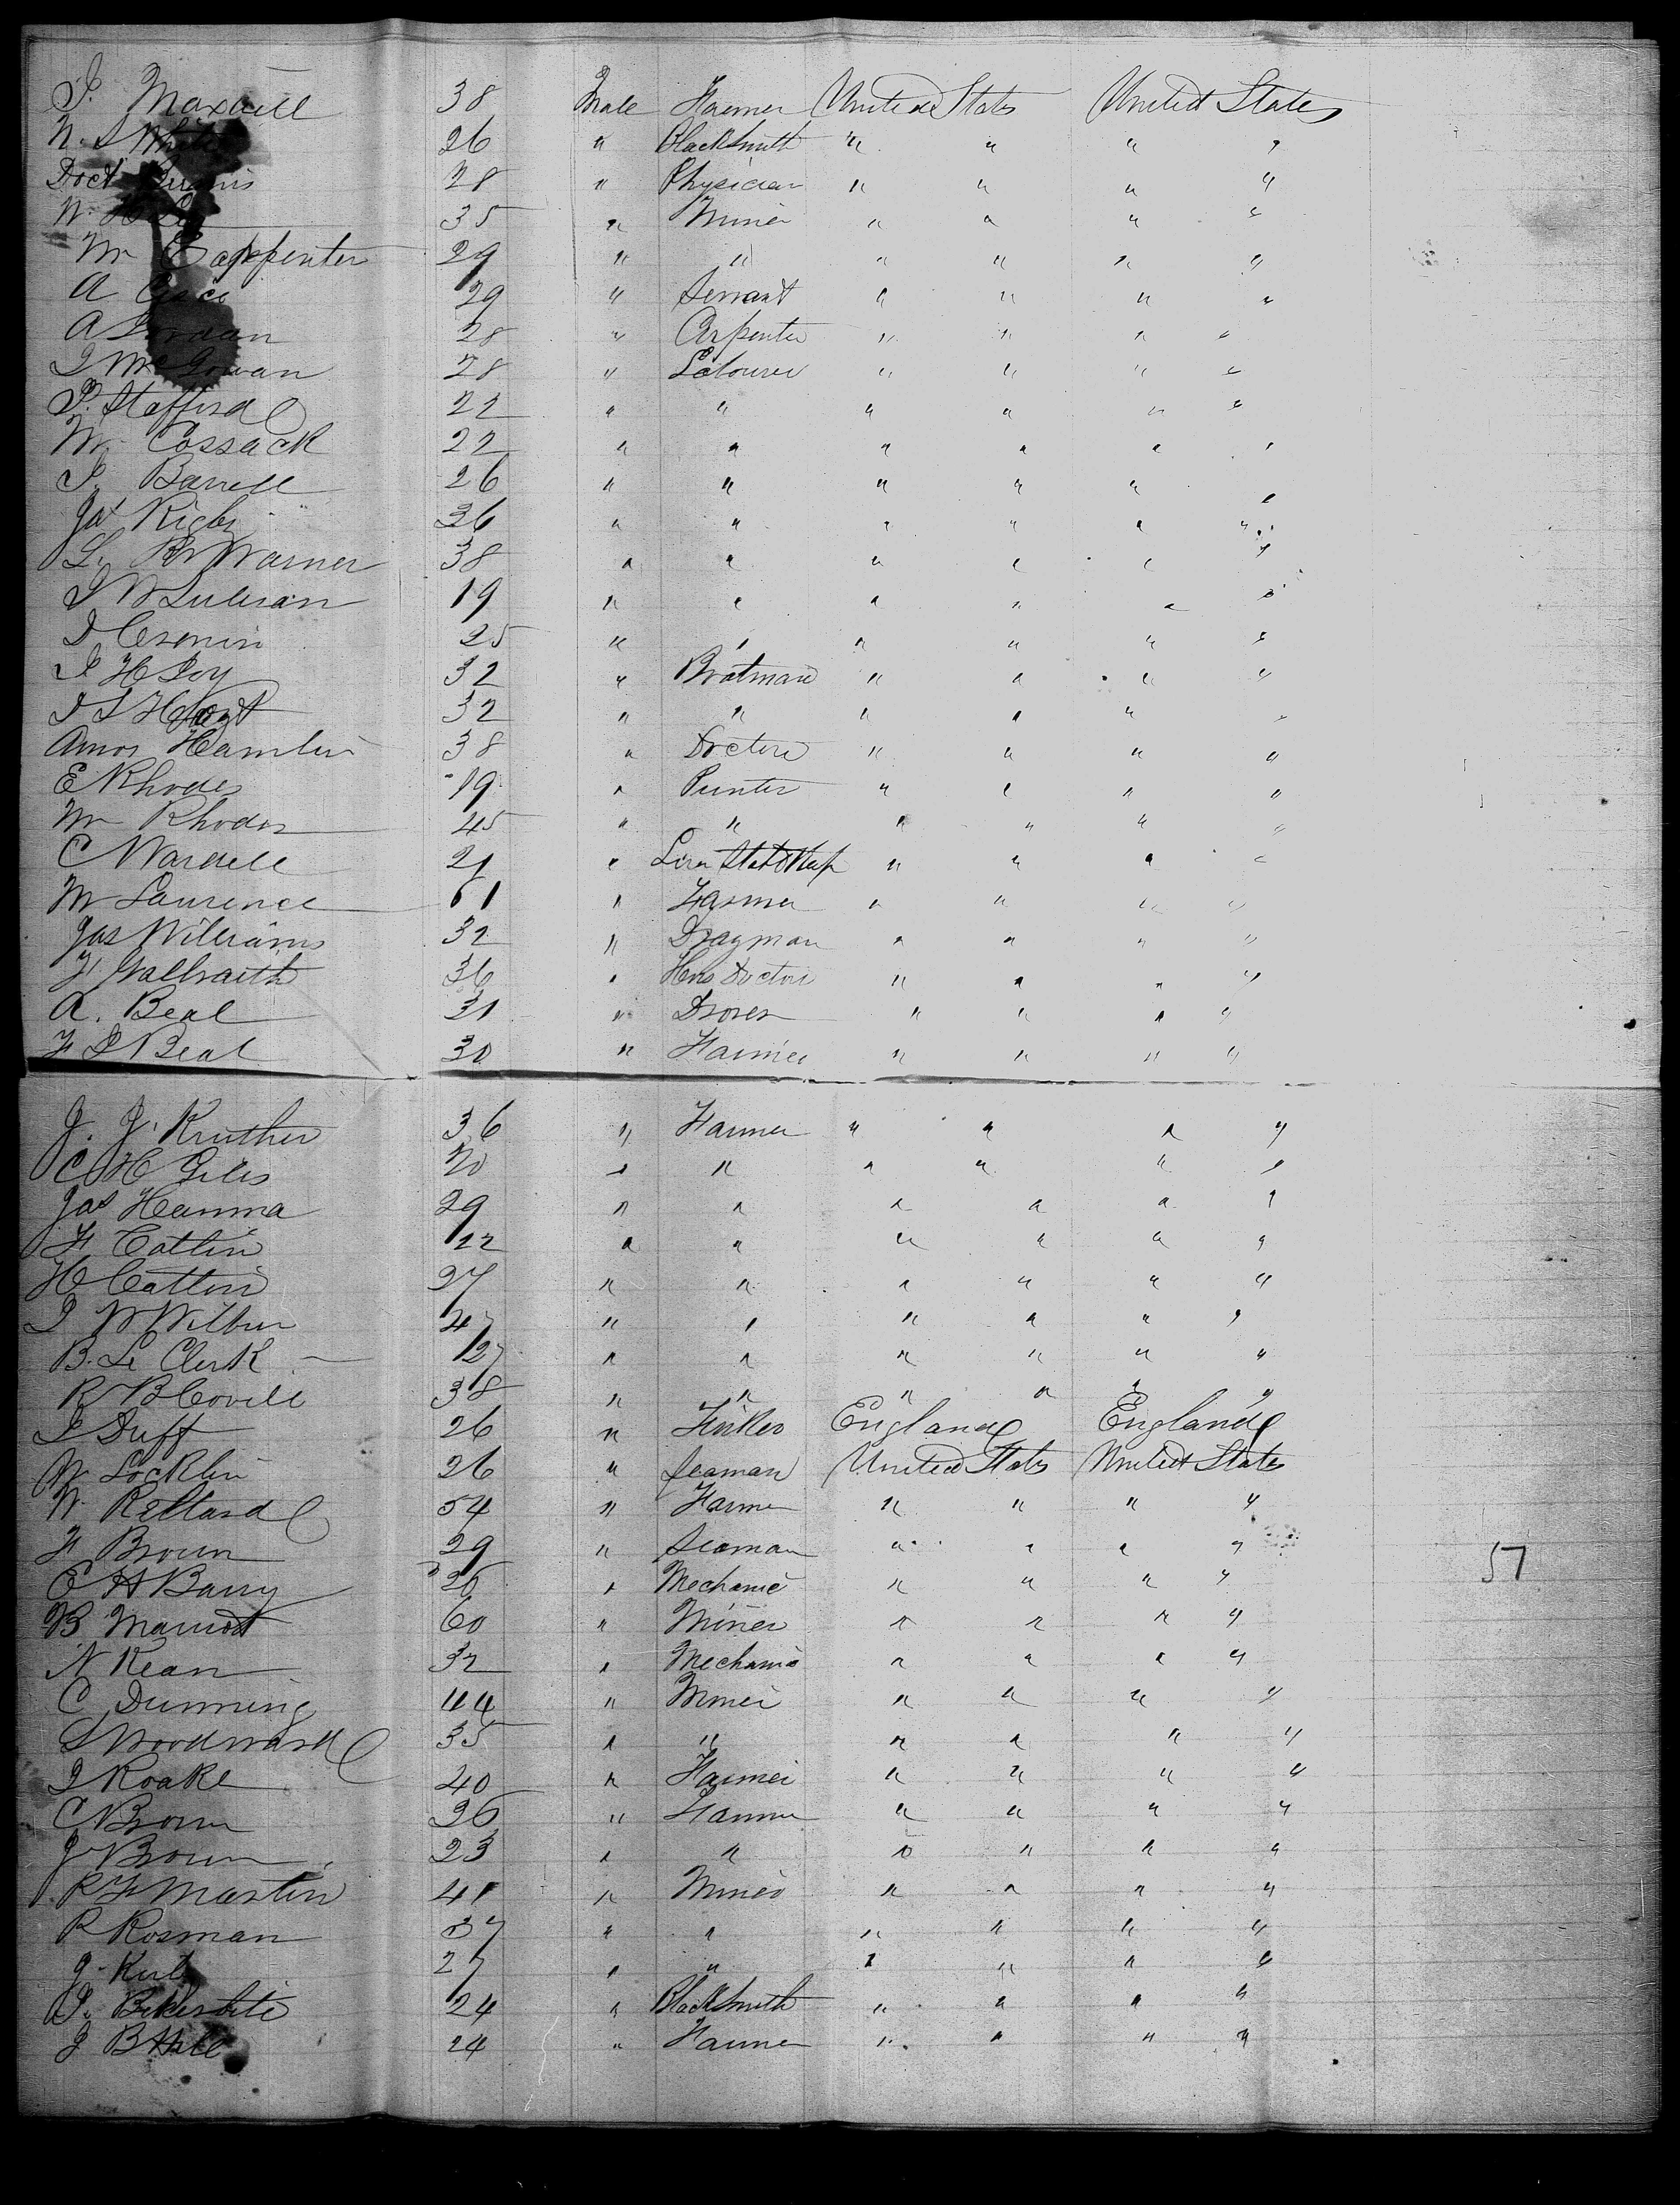 J. Maxwell 38 Male Farmer United States United States
N. S White 26 " Blacksmith " " " "
Doct 28 " Physician " " " "
W. H 35 " Miner " " " "
Mr Carpenter 29 " " " " " "
A Grace 29 " Servant " " " "
A Jordan 28 " Carpenter " " " "
J McGowan 28 " Labourer " " " "
P. Stafford 22 " " " " " "
Mr Cossack 22 " " " " " "
J. Barrell 26 " " " " " "
Jas Rigby 36 " " " " " "
L. B Warner 38 " " " " " "
J W Sulivan 19 " " " " " "
J Cronin 25 " " " " " "
J H Joy 32 " Boatman " " " "
J S Hoyt 32 " " " " " "
Amos Hamlin 38 " Doctor " " " "
E Rhodes 19 " Printer " " " "
Mr Rhodes 45 " " " " " "
C Wardell 21 " " " " "
Mr Laurence 61 " Farmer " " " "
Jas Williams 32 " Drayman " " " "
F Galbraith 36 " Hors Doctor " " " "
A. Beal 31 " Drover " " " "
F J Beal 30 " Farmer " " " "
J. J. Kruther 36 " Farmer " " " "
C H Giles 20 " " " " " "
Jas Hanma 29 " " " " " "
F Catlin 22 " " " " " "
H Catlin 27 " " " " " "
J W Wilbur 47 " " " " " "
B. Le Clerk 27 " " " " " "
R B Covell 38 " " " " " "
J Duff 26 " England England
W Locklin 26 " Seaman United States United States
W. Rellard 54 " Farmer " " " "
F Brown 29 " Seaman " " " "
E H Barry 26 " Mechanic " " " "
B Marriot 60 " Miner " " " "
N Kean 32 " Mechanic " " " "
C Dunning 44 " Miner " " " "
S Woodward 35 " " " " " "
J Roake 40 " Farmer " " " "
C Brown 36 " Farmer " " " "
J Brown 23 " " " " " "
R F Martin 41 " Miner " " " "
R Rosman 37 " " " " " "
J. 27 " " " " " "
J. 24 " Blacksmith " " " "
J B Hill 24 " Farmer " " " "
57